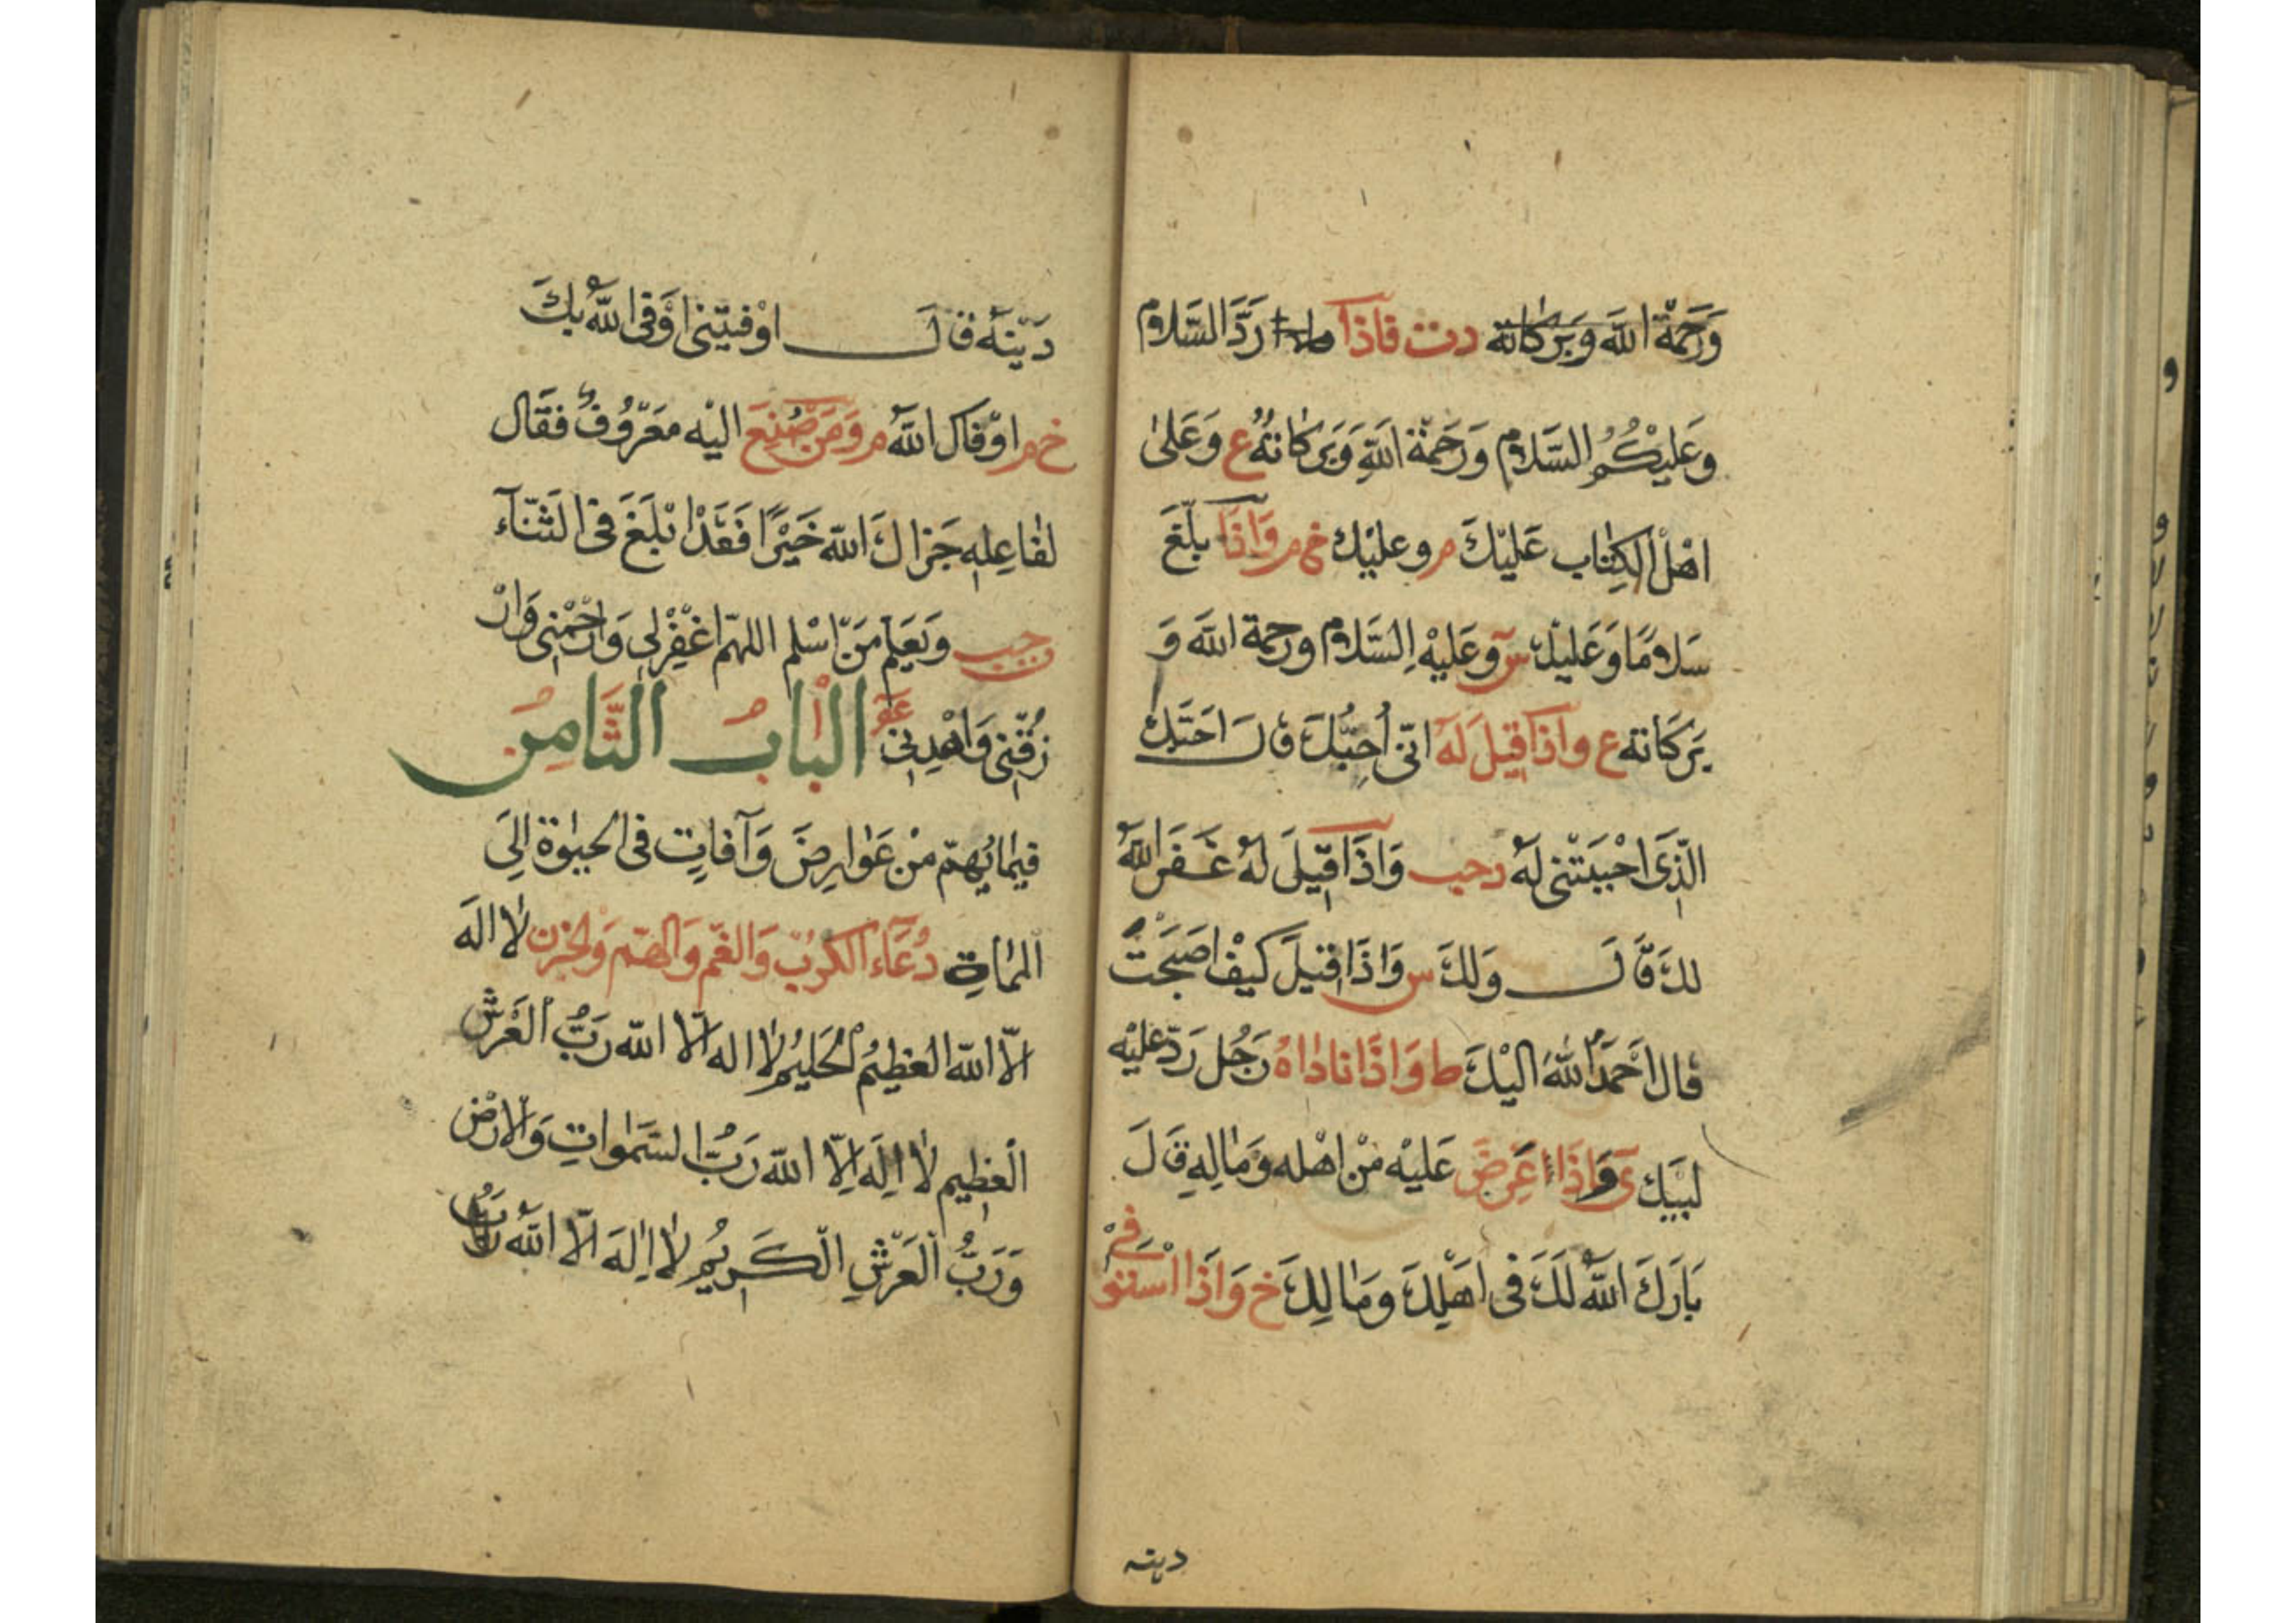 وَرَحْمَةُ اللهِ وَبَرَكَاتُهُ دت فَاذَا رَدَّ السَّلَامُ
وَعَلَيْكُمُ السَّلَامُ وَرَحْمَةُ اللهِ وَبَرَكَاتُهُ ع وَعَلىٰ
اهْلُ الكِتٰابِ عَلَيْكَ م وعليْكَ خ م وَاذَا بلّغَ
سَلامًا وَعَليْكَ س وعَليْهِ السَّلامُ ورحمة الله وَ
بَرَكَاتُهُ ع واذَا قيلَ لَهُ انّى اُحِبُّكَ قَالَ احَبَّكَ
الّذِى احْبَبْتَنى لَهُ دحب وَاذَا قيلَ لَهُ غَفَرَ اللهُ
لكَ قَالَ وَلكَ س وَاذَا قيْلَ كَيْفَ اصْبَحْتَ
قال احْمَدُ اللهَ اليْكَ ط وَاذَا نَادٰاهُ رَجُل رَدَّ عليْه
لبّيْكَ ى وَاذَا عَرضَ عَليْه مِنْ اهْله وَمٰالِهِ قَالَ
بَارَكَ اللهُ لَكَ فى اهْلِكَ وَمٰالِكَ خ وَاذَا اسْتَوْفى
دينه
دَيْنَهُ قالَ اوْفيْتَنى اوْفَى اللهُ بِكَ
خ م اوْفاكَ اللهُ م وَمَنْ صُنِعَ اليْه مَعْرُوفٌ فقَال
لفٰاعِلِهِ جَزاكَ الله خَيْرًا فقَدْ ابْلَغَ فى الثَّنٰاء
ت حب وَيُعَلِّمُ مَنْ اسْلم اللهمّ اغْفِرْلى وَارْحَمْنى وَارْ
زُقْنى وَاهْدِنى عو البَابُ الثَّامِنُ
فيمٰا يُهمّ مِنْ عَوٰارِضَ وَآفاتٍ فى الحيٰوة الىَ
المٰماتِ دُعَاءُ الكَرْبِ وَالغَمِّ وَالهَمِّ وَالحُزنِ لٰا الهَ
الّا الله العَظِيْمُ الحَليْمُ لٰا اله الّا الله رَبُّ العَرْشِ
الْعَظِيم لٰا الهَ الّا الله رَبُّ السَّمٰواتِ وَالْارْضِ
وَرَبُّ العَرْشِ الْكَرِيْمُ لٰا الهَ الّا اللهُ رَبُّ